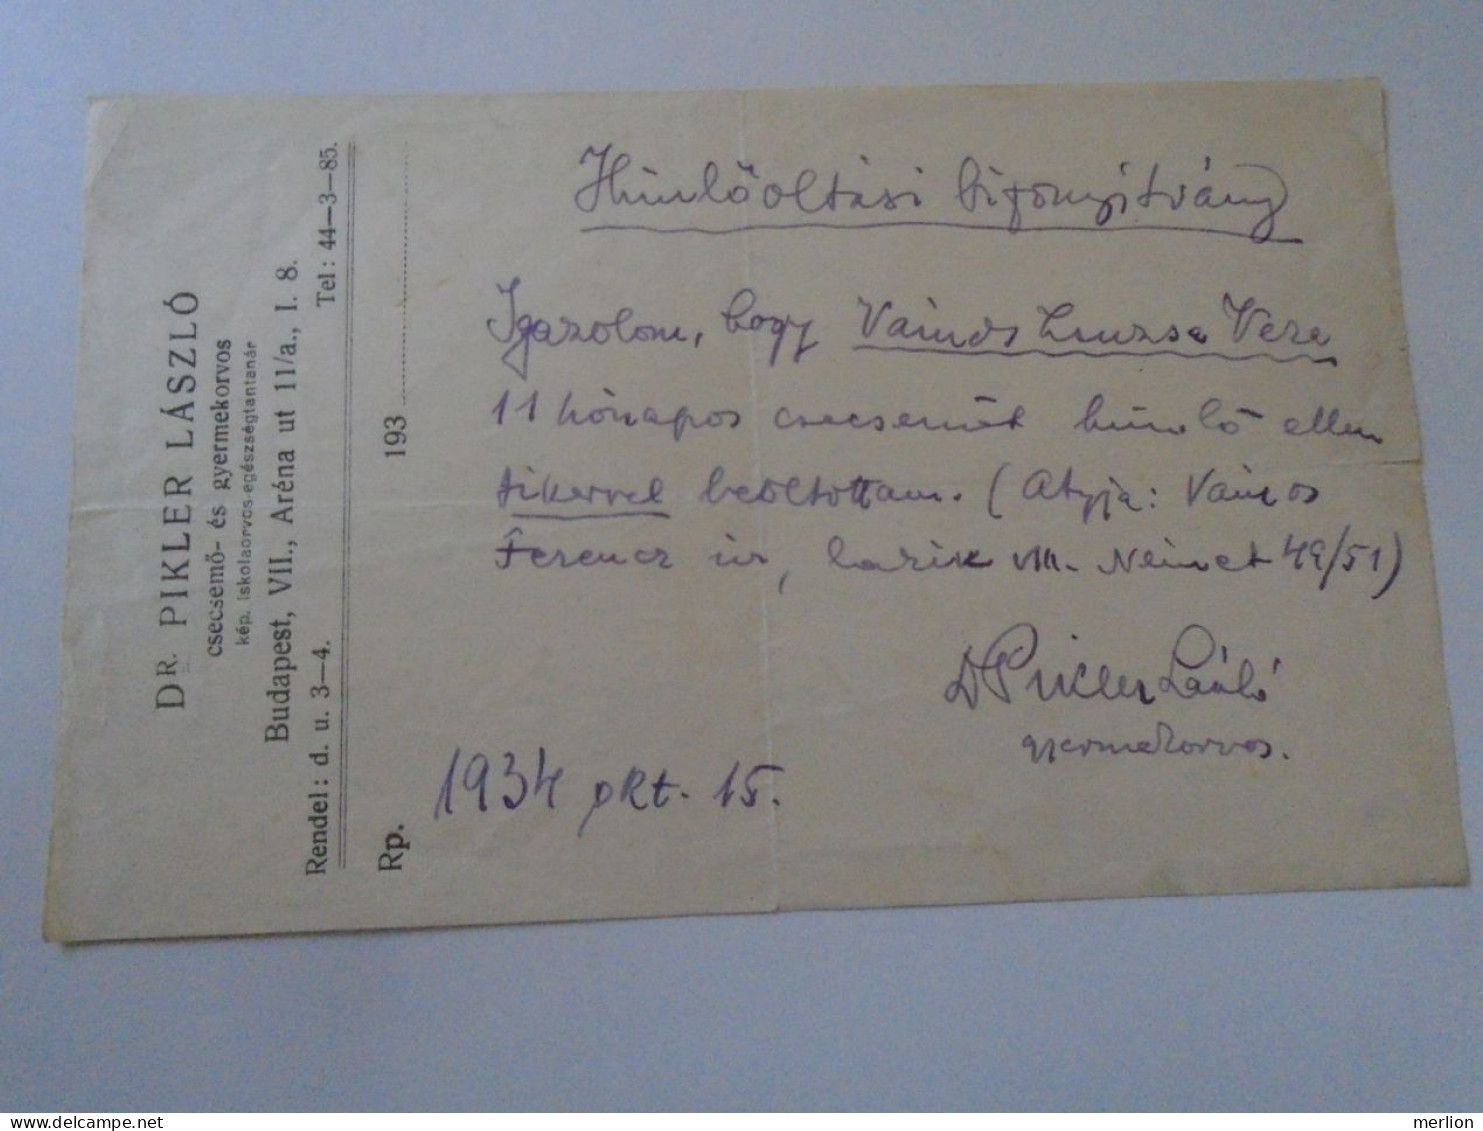 DR. PIKLER LÁSZLÓ
csecsemő- és gyermekorvos
kép. iskolaorvos-egészségtantanár
Budapest, VII., Aréna ut 11/a., I. 8.
Rendel: d. u. 3—4. Tel: 44—3—85.
Rp. 193
Himlőoltási bizonyítvány
Igazolom, hogy Vámos Zsuzsa Vera
11 hónapos csecsemőt himlő ellen
sikerrel beoltottam. (Atyja: Vámos
Ferencz úr, lakik VIII. Német 49/51)
Dr Pikler László
gyermekorvos.
1934 okt. 15.
merlion